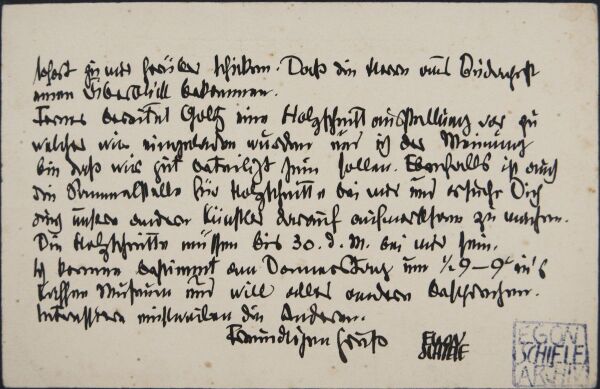 sofort zu mir herüber schicken. Daß die Herren aus Budapest
einen Überblick bekommen.
Ferner bereitet Goltz eine Holzschnittausstellung vor zu
welcher wir eingeladen wurden und ich der Meinung
bin daß wir gut beteiligt sein sollen. Ebenfalls ist auch
die Sammelstelle für Holzschnitte bei mir und ersuche Dich
auch unsere andern Künstler darauf aufmerksam zu machen.
Die Holzschnitte müssen bis 30. d. M. bei mir sein.
Ich komme bestimmt am Donnerstag um ½ 9 – 9h in's
Museum und will alles andere besprechen.
Interessiere einstweilen die Anderen.
Freundlichen Gruß EGON
SCHIELE
EGON
SCHIELE
ARCHIV